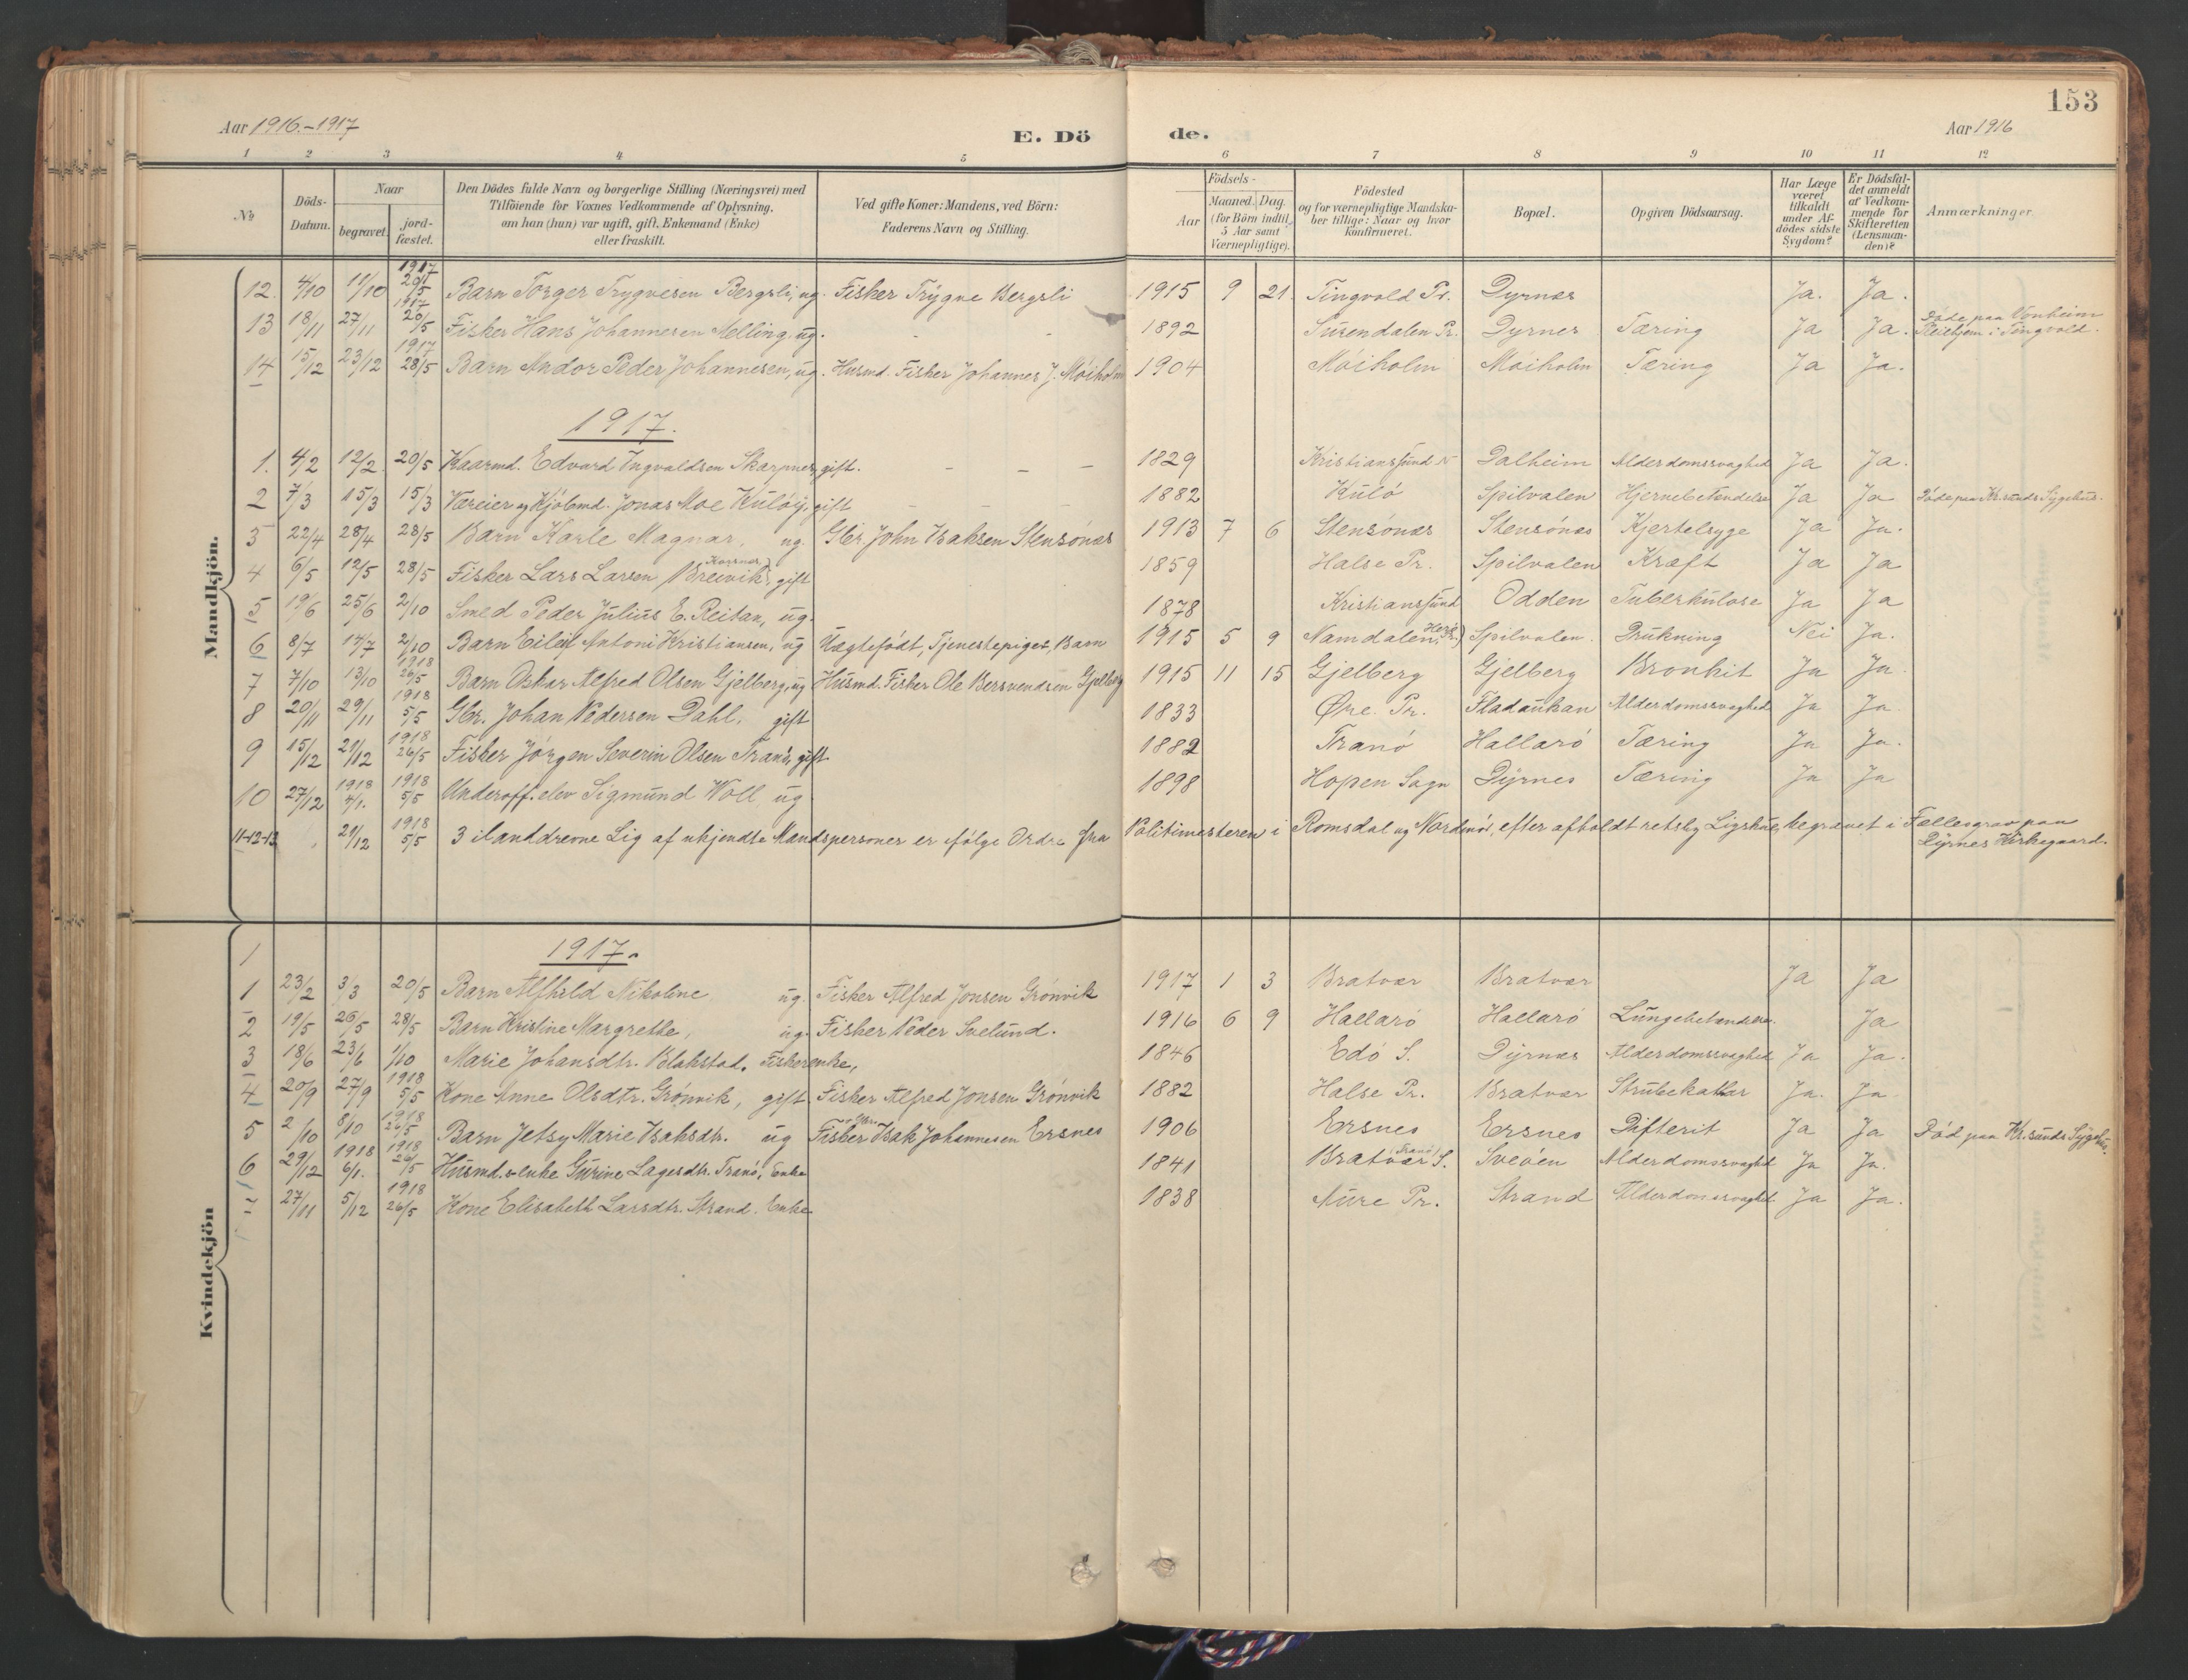 153
Aar 1916.-1917
E. Dö de.
Aar 1916
1 2 3 4 5 6 7 8 9 10 11 12
No
Döds-Datum.
Naar
begravet.
jord-fæstet.
Den Dödes fulde Navn og borgerlige Stilling (Næringsvei) med
Tilföiende for Voxnes Vedkommende af Oplysning,
om han (hun) var ugift, gift, Enkemand (Enke)
eller fraskilt.
Ved gifte Koner: Mandens, ved Börn:
Faderens Navn og Stilling.
Födsels-
Aar
Maaned. Dag.
(for Börn indtil
5 Aar samt
Værnepligtige).
Födested
og for værnepligtige Mandska-
ber tillige: Naar og hvor
konfirmeret.
Bopæl.
Opgiven Dödsaarsag.
Har Læge
været
tilkaldt
under Af-
dödes sidste
Sygdom?
Er Dödsfal-
det anmeldt
af Vedkom-
mende for
Skifteretten
(Lensman-
den)?
Anmærkninger.
Mandkjön.
12. 4/10 11/10 1917 20/5 Barn Torger Trygvesen Bergsli, ug. Fisker Trygve Bergsli 1915 9 21. Tingvold Pr. Dyrnes Ja. Ja.
13 18/11 27/11 1917 20/5 Fisker Hans Johannesen Melling, ug. - - 1892 Surendalen Pr. Dyrnes Tæring Ja Ja. Døde paa Vonheim Pleiehjem i Tingvold.
14 15/12 23/12 1917 28/5 Barn Andor Peder Johannesen, ug. Husmd. Fisker Johannes J. Møiholm 1904 Møiholm Møiholm Tæring Ja Ja.
1917.
1. 4/2 12/2 20/5 Kaarmd. Edvard Ingvaldsen Skarpnes, gift. - - - 1829 Kristianssund N Dalheim Alderdomssvaghed Ja Ja.
2 7/3 15/3 15/3 Væreier og Kjøbmd. Jonas Moe Kuløy, gift - - - 1882 Kulø Spilvalen Hjernebetændelse Ja Ja Døde paa Kr.sunds Sygehus.
3 22/4 28/4 28/5 Barn Karle Magnar, ug. Gbr. John Isaksen Stensønes 1913 7 6 Stensønes Stensønes Kjertelsyge Ja Ja.
4 6/5 12/5 28/5 Fisker Lars Larsen Breivik, gift 1859 Halse Pr. Spilvalen Kræft Ja Ja
5 19/6 25/6 2/10 Smed Peder Julius E. Reitan, ug. 1878 Kristianssund Odden Tuberkulose Ja Ja
6 8/7 14/7 2/10 Barn Eilef Antoni Kristiansen, ug Uægtefødt, Tjenestepiges, Barn 1915 5 9 Namdalen Spilvalen. Drukning Nei Ja.
7 7/10 13/10 1918 26/5 Barn Oskar Alfred Olsen Gjelberg, ug Husmd. Fisker Ole Bersvendsen Gjelberg 1915 11 15 Gjelberg Gjelberg Bronkit Ja Ja.
8 20/11 29/11 1918 5/5 Gbr. Johan Pedersen Dahl, gift 1833 Øre Pr. Fladaukan Alderdomssvaghed Ja Ja.
9 15/12 21/12 1918 26/5 Fisker Jørgen Severin Olsen Tranø, gift. 1882 Tranø Hallarø Tæring Ja Ja.
10 27/12 1918 4/1. 1918 5/5 Underoff. elev Sigmund Woll, ug 1898 Hopen Sogn Dyrnes Tæring Ja Ja
11-12-13 21/12 1918 5/5 3 ilanddrevne Lig af ukjendte Mandspersoner er ifølge Ordre fra Politimesteren i Romsdal og Nordmør, efter afholdt retslig Ligskue, begravet i Fællesgrav paa
Dyrnes Kirkegaard.
Kvindekjön
1
1917.
1 23/2 3/3 20/5 Barn Alfhild Nikoline ug. Fisker Alfred Jonsen Grønvik 1917 1 3 Bratvær Bratvær Ja Ja
2 19/5 26/5 28/5 Barn Kristine Margrethe, ug. Fisker Peder Svelund. 1916 6 9 Hallarø Hallarø Lungebetændelse. Ja
3 18/6 23/6 1/10 Marie Johansdtr. Blakstad, Fiskerenke, 1846 Edø S. Dyrnes Alderdomssvaghed Ja Ja.
4 20/9 27/9 1918 5/5 Kone Anne Olsdtr. Grønvik, gift Fisker Alfred Jonsen Grønvik 1882 Halse Pr. Bratvær Strubekatar Ja. Ja
5 2/10 8/10 1918 26/5 Barn Jetsy Marie Isaksdtr. ug Fisker Isak Johannesen Ersnes 1906 Ersnes Ersnes Difterit Ja Ja Død paa Kr.sunds Sygehus.
6 29/12 1918 6/1. 1918 26/5 Husmd.enke Gurine Lagesdtr. Tranø, Enke 1841 Bratvær S. Sveøen Alderdomssvaghed Ja Ja.
7 27/11 5/12 1918 26/5 Kone Elisabeth Larsdtr. Strand. Enke 1838 Aure Pr. Strand Alderdomssvaghed Ja Ja.